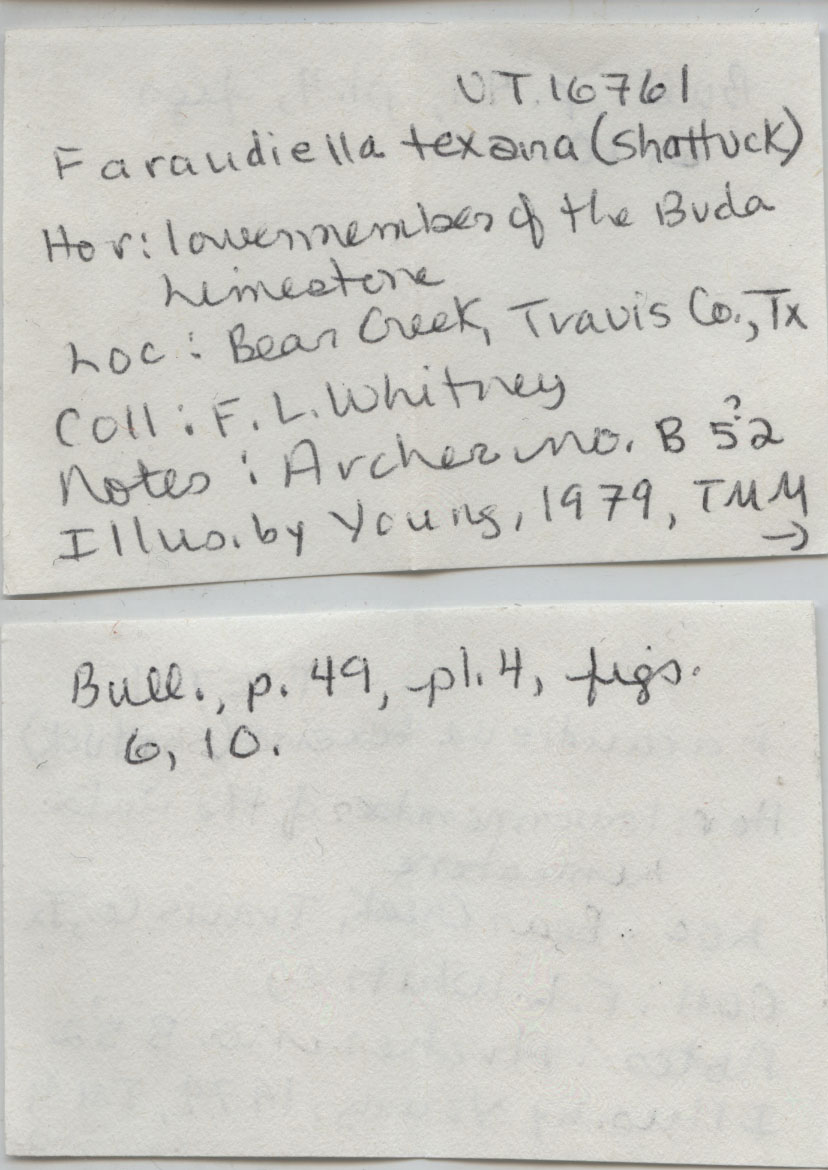 UT.16761
Faraudiella texana (Shattuck)
Hor: lower member of the Buda
Limestone
Loc: Bear Creek, Travis Co., Tx
Coll: F. L. Whitney
Notes: Archer no. B 5?2
Illus. by Young, 1979, TMM
→
Bull., p. 49, pl. 4, figs.
6, 10.